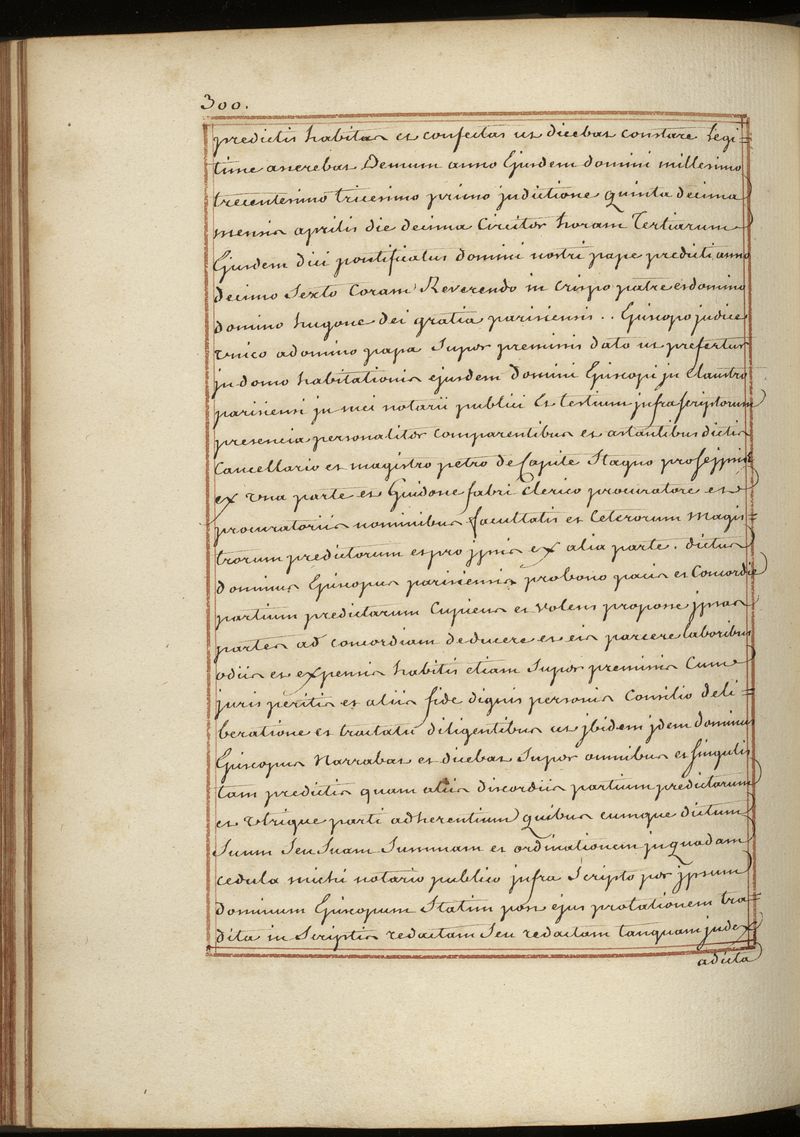 300.
predictis habitas et confectas ut dicebat constare legi=
time asserebat Demum anno Ejusdem domini millesimo
trecentesimo tricesimo primo jndictione quinta decima
mensis aprilis die decima Circiter horam Tertiarum
Ejusdem diei pontificatus domini nostri pape predicti anno
decimo Sexto Coram Reverendo in Cristo patre et domino
domino hugone dei gratia parisiensis .. Episcopo judice
Unico a domino papa Super premissis dato ut prefertur
jn domo habitationis ejusdem domini Episcopi jn Claustro
parisiensi jn mei notarii publici Et testium jnfrascriptorum
presencia personaliter comparentibus et astantibus dictis
Cancellario et magistro petro de Capite Stagno pro se jpsis
ex Una parte et Guidone fabri Clerico procuratore et
procuratoriis nominibus facultatis et Ceterorum Magis=
trorum predictorum et pro jpsis ex alia parte. dictus
dominus Episcopus parisiensis pro bono pacis et Concordie
partium predictarum Cupiens et volens propone jpsas
partes ad concordiam deducere et eis parcere laboribus
odiis et expensis habitis etiam Super premissis Cum
juris peritis et aliis fide dignis personis Consilio deli=
beratione et tractatu diligentibus ut jbidem jdem dominus
Episcopus Narrabat et dicebat Super omnibus et singulis
tam predictis quam aliis discordiis partium predictarum
et Utrique parti adherentium quibus cumque dictum
Suum Seu Suam Summam et ordinationem jn quadam
cedula michi notario publico jnfra Scripto per jpsum
dominum Episcopum Statim post ejus prolationem tra=
dita in Scriptis redactam Seu redactam tanquam judex
adicta